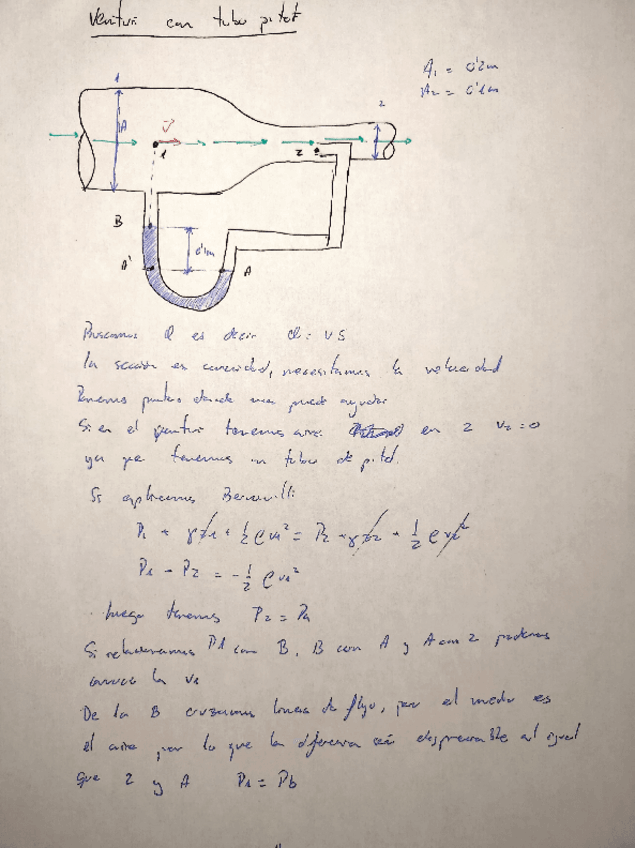 Venturi con tubo pitot
A1 = 0'2m
A2 = 0'1m
1
2
A
V
1
2
B
0'1m
A'
A
Buscamos Q es decir Q = v S
La sección es conocida, necesitamos la velocidad
Tenemos puntos donde nos puede ayudar
Si en el venturi tenemos aire en 2 v2 = 0
ya que tenemos un tubo de pitot.
Si aplicamos Bernoulli:
P1 + γz1 + 1/2 ρ v1² = P2 + γz2 + 1/2 ρ v2²
P1 - P2 = - 1/2 ρ v1²
luego tenemos P2 = PA
Si relacionamos P1 con B, B con A y A con 2 podemos
conocer la v1
De 1 a B cruzamos líneas de flujo, pero el medio es
el aire por lo que la diferencia será despreciable al igual
que 2 y A P1 = Pb